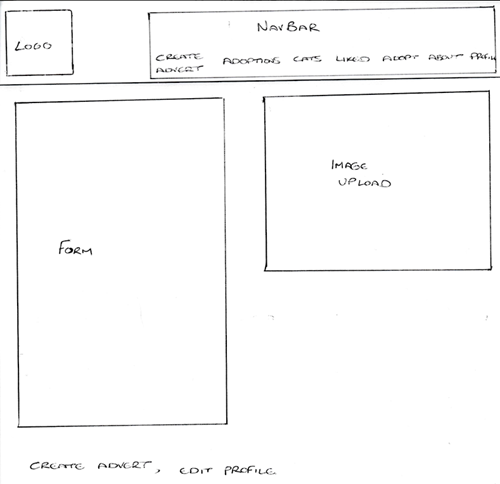 LOGO
NAVBAR
CREATE ADOPTIONS CATS LIKED ADOPT ABOUT PROFIL
ADVERT
IMAGE
UPLOAD
FORM
CREATE ADVERT, EDIT PROFILE